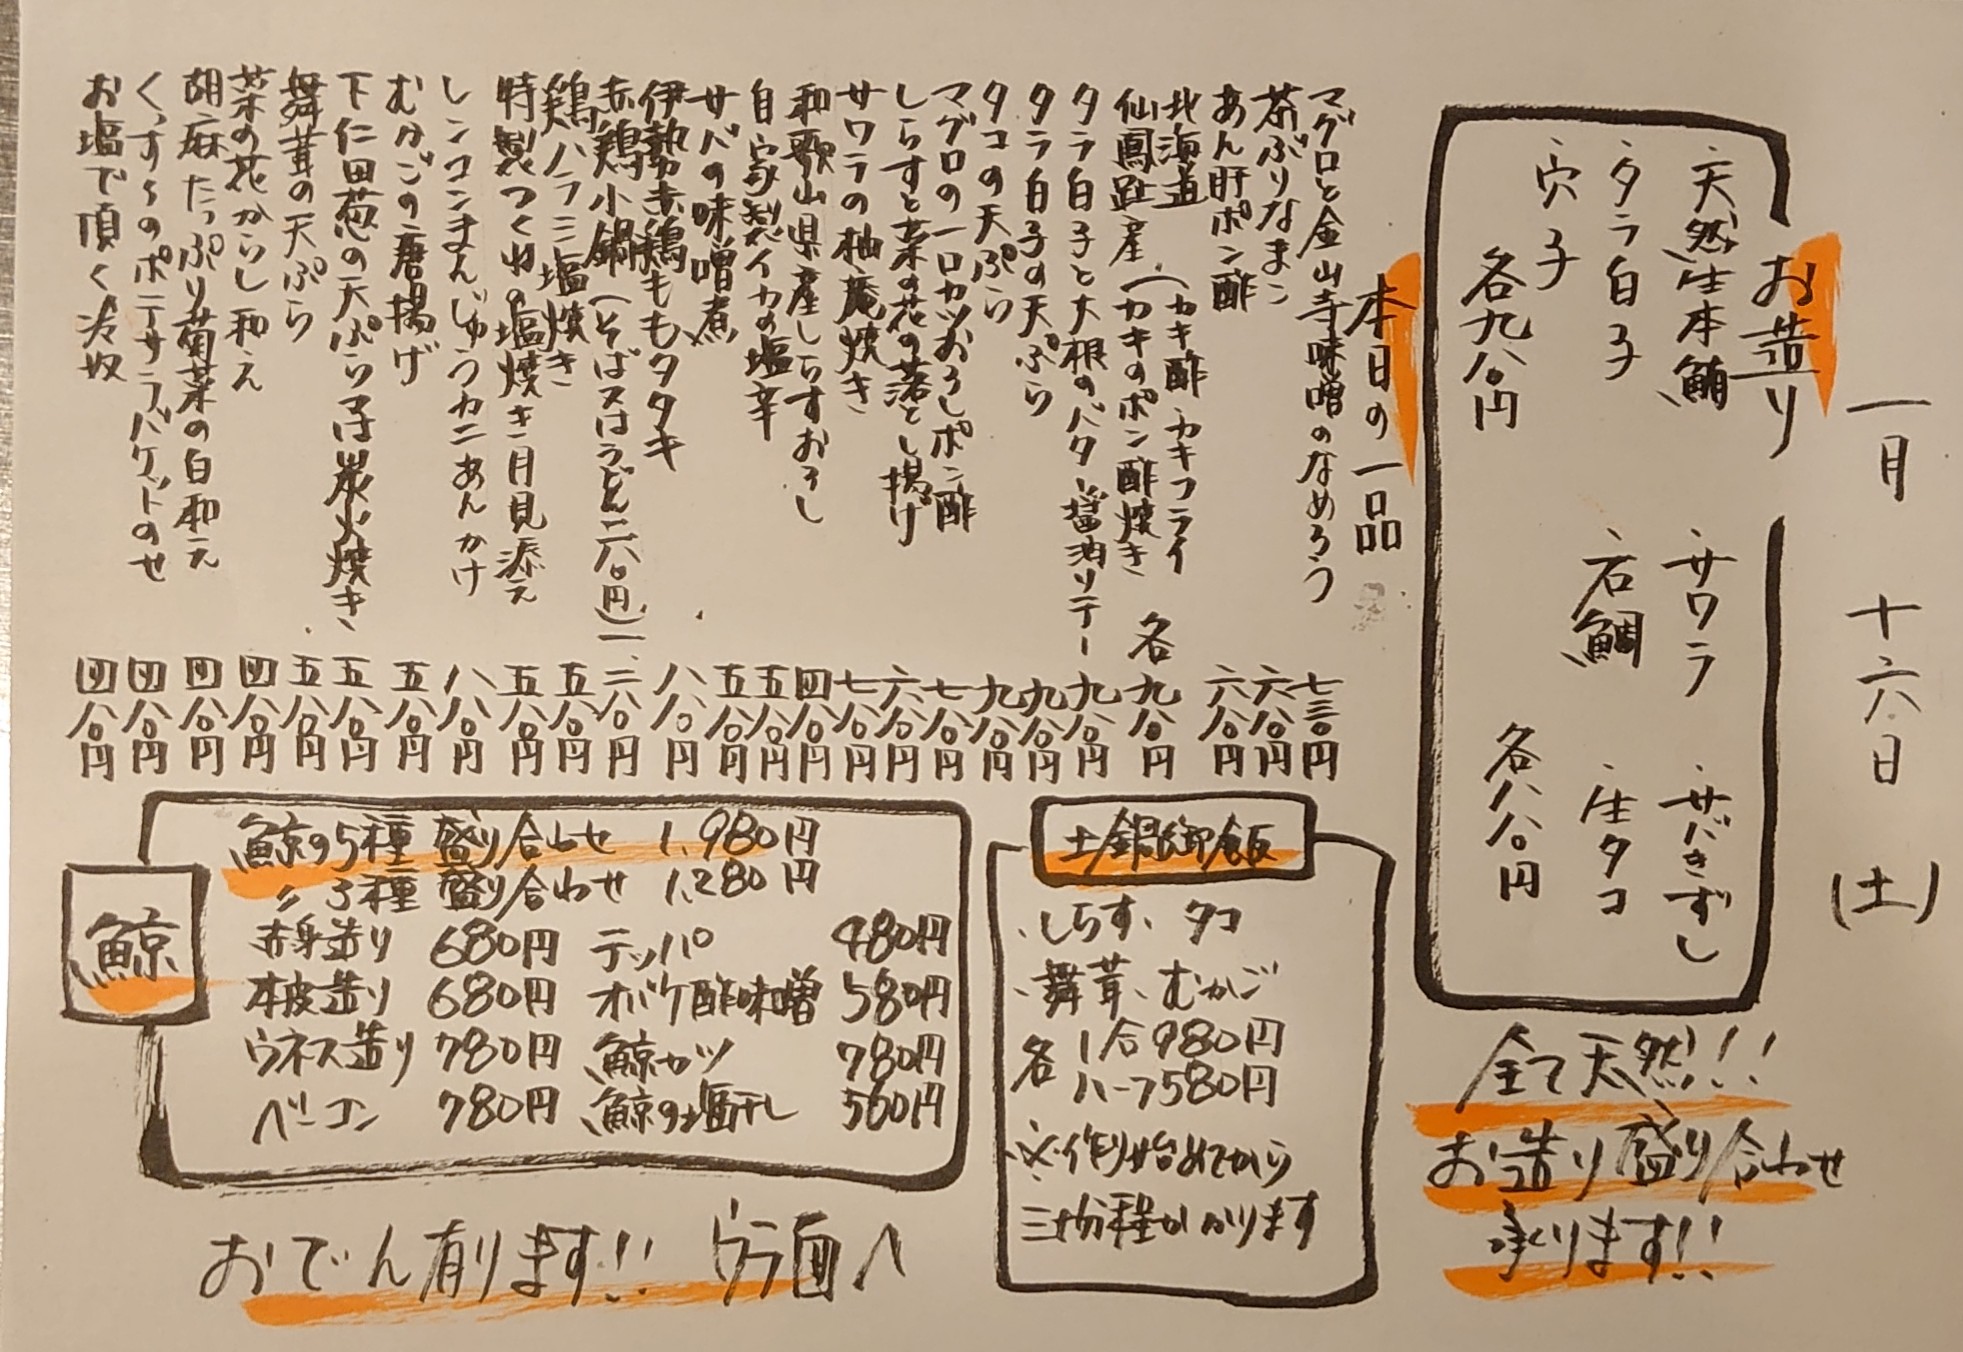 一月 十六日 (土)
お造り
・天然生本鮪 ・サワラ ・サバきずし
・タラ白子 ・石鯛 ・生タコ
・穴子
各九八〇円 各八八〇円
全て天然!!
お造り盛り合わせ
承ります!!
本日の一品
マグロと金山寺味噌のなめろう 七三〇円
茶ぶりなまこ 六八〇円
あん肝ポン酢 六八〇円
北海道 (カキ酢・カキフライ
仙鳳趾産 (カキのポン酢焼き 各九八〇円
タラ白子と大根のバター醤油ソテー 九八〇円
タラ白子の天ぷら 九八〇円
タコの天ぷら 九八〇円
マグロの一口カツおろしポン酢 七八〇円
しらすと菜の花の落とし揚げ 六八〇円
サワラの柚庵焼き 七八〇円
和歌山県産しらすおろし 四八〇円
自家製イカの塩辛 五八〇円
サバの味噌煮 五八〇円
伊勢赤鶏ももタタキ 八八〇円
赤鶏小鍋(そば又はうどん二八〇円) 一、二八〇円
鶏ハラミ塩焼き 五八〇円
特製つくねの塩焼き 月見添え 五八〇円
レンコンまんじゅうカニあんかけ 八八〇円
むかごの唐揚げ 五八〇円
下仁田葱の天ぷら又は炭火焼き 五八〇円
舞茸の天ぷら 五八〇円
菜の花からし和え 四八〇円
胡麻たっぷり菊菜の白和え 四八〇円
くんすろのポテサラバケットのせ 四八〇円
お塩で頂く冷奴 四八〇円
土鍋御飯
・しらす、タコ
・舞茸、むかご
各 1合980円
ハーフ580円
※作り始めてから
三十分程かかります
鯨
鯨の5種盛り合わせ 1,980円
〃3種盛り合わせ 1,280円
赤身造り 680円 テッパ 480円
本皮造り 680円 オバケ酢味噌 580円
ウネス造り 780円 鯨カツ 780円
ベーコン 780円 鯨の塩干し 560円
おでん有ります!! ウラ面へ